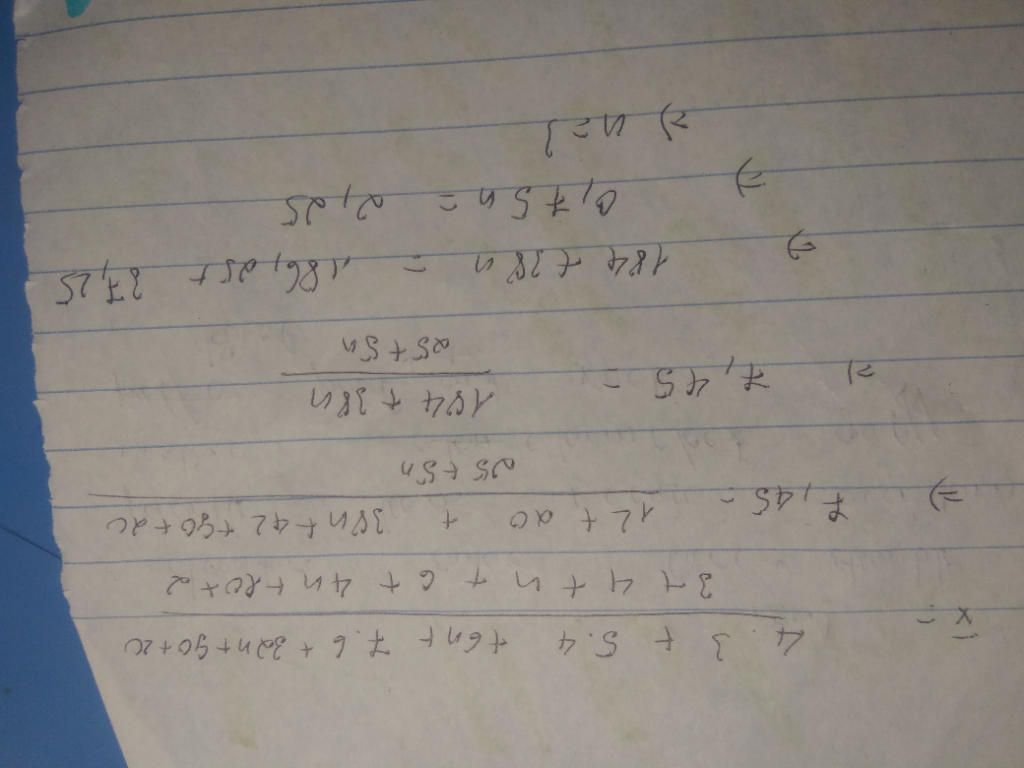 x̄ = 4.3 + 5.4 + 6n + 7.6 + 32n + 90 + 20
3 + 4 + n + 6 + 4n + 10 + 2
=) 7,45 = 12 + 20 + 38n + 42 + 90 + 20
25 + 5n
=) 7,45 = 184 + 38n
25 + 5n
=) 184 + 38n = 186,25 + 37,25
=) 0,75n = 2,25
=) n = 3